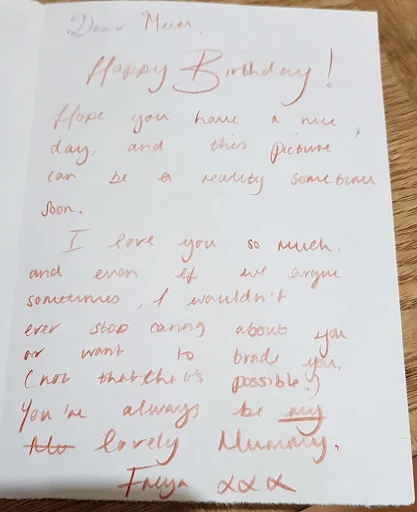 Dear Mum,
Happy Birthday!
Hope you have a nice
day, and this picture
can be a reality sometime
soon.
I love you so much,
and even if we argue
sometimes, I wouldn't
ever stop caring about you
or want to trade you.
(not that that's possible!)
You're always be my
lovely Mummy.
Freya xxx